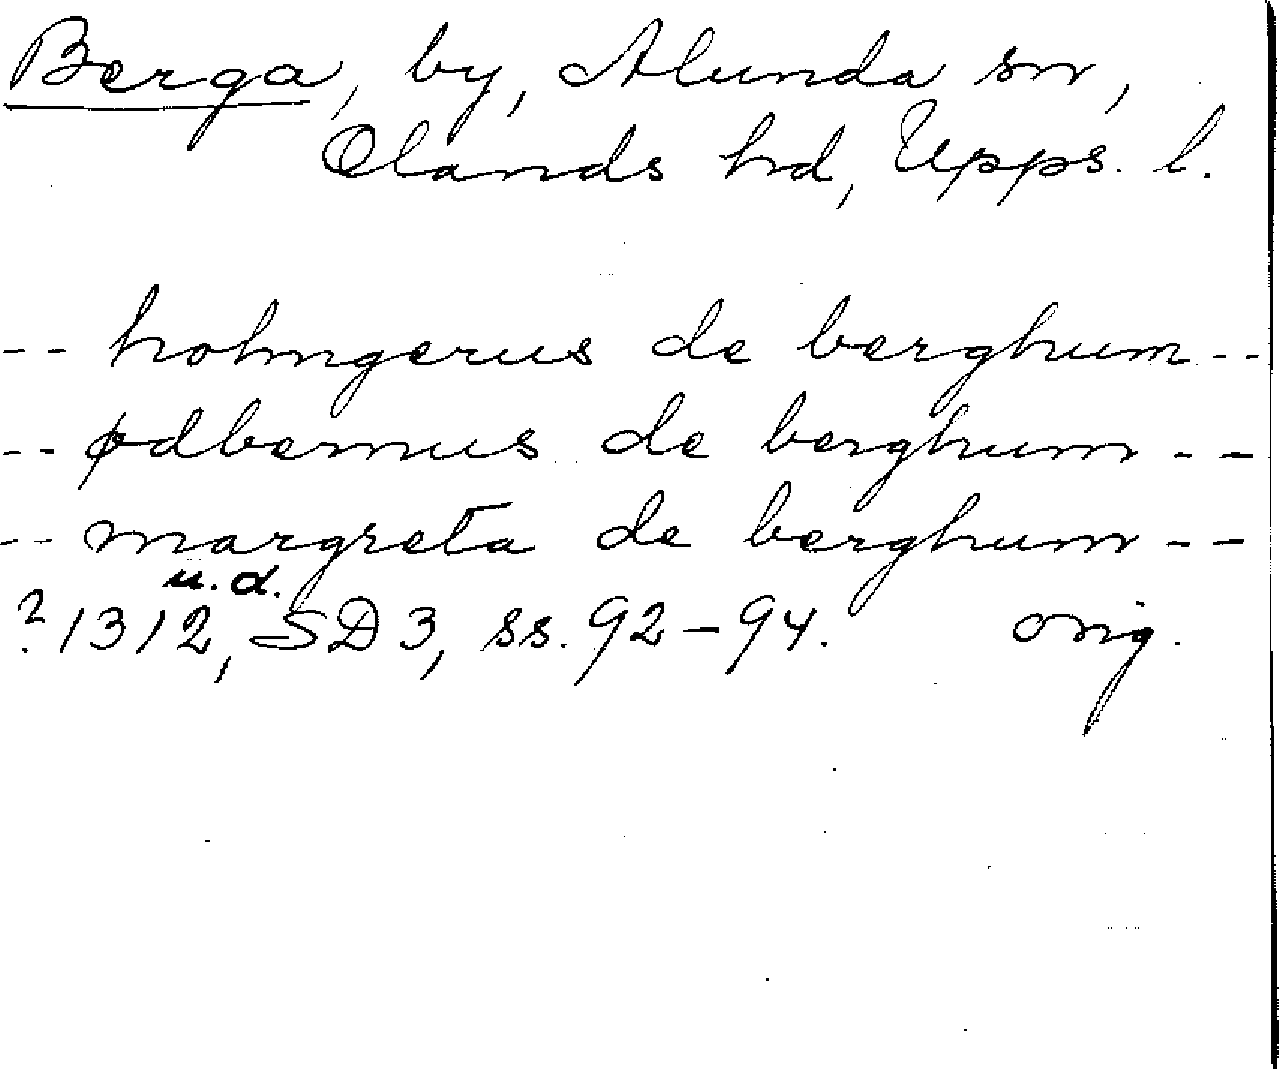 Berga, by, Alunda sn,
Olands hd, Upps. l.
-- holmgerus de berghum --
-- ødbernus de berghum --
-- margreta de berghum --
u. d.
? 1312, SD 3, ss. 92-94. orig.